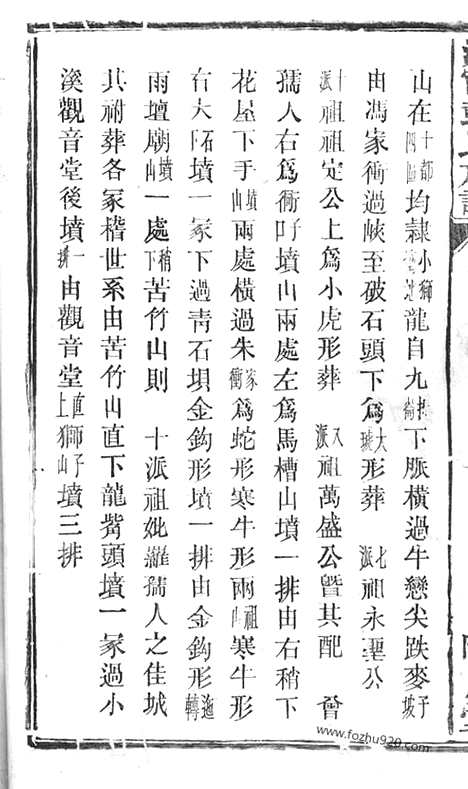 山在十都四區均隸小獅龍自九下脈橫過牛戀尖跌麥子坡
由馮家衝過峽至破石頭下爲大形葬　七派祖永聖公
十派祖祖定公上爲小虎形葬　又派祖萬盛公曁其配　曾
孺人右爲衝口子墳山兩處左爲馬槽山墳一排由右稍下
花屋下手墳山兩處橫過朱家衝爲蛇形寒牛形兩祖山寒牛形
右大石下墳一冢下過靑石垻金鈎形墳一排由金鈎形迤轉
雨壇廟墳山一處稍下苦竹山則　十派祖妣羅孺人之佳城
其祔葬各冢稽世系由苦竹山直下龍觜頭墳一冢過小
溪觀音堂後墳一排由觀音堂直上獅子山墳三排
www.fozhu920.com